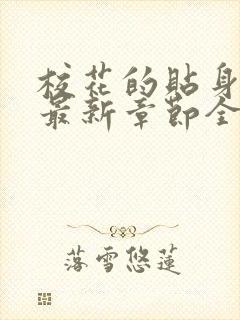 校花的貼身
最新章節全
落雪悠蓮